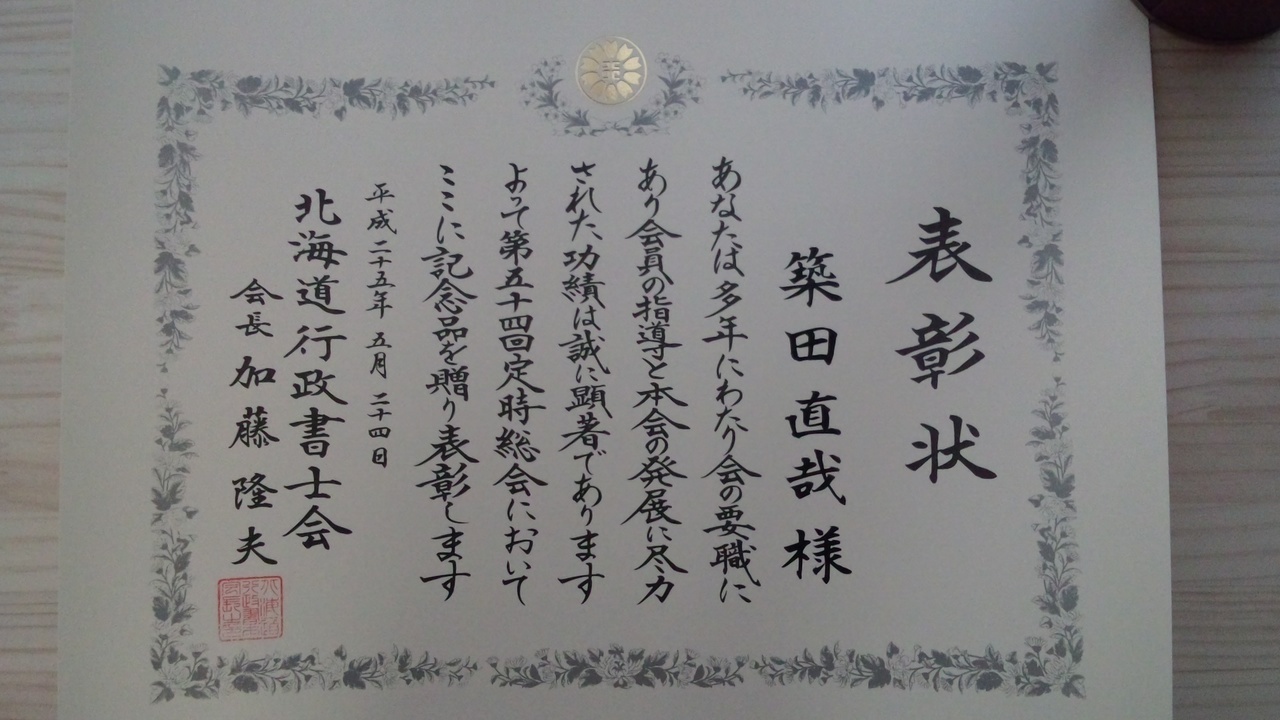 表彰状
築田直哉様
あなたは多年にわたり会の要職に
あり会員の指導と本会の発展に尽力
された功績は誠に顕著であります
よって第五十四回定時総会において
ここに記念品を贈り表彰します
平成二十五年 五月 二十四日
北海道行政書士会
会長 加藤隆夫